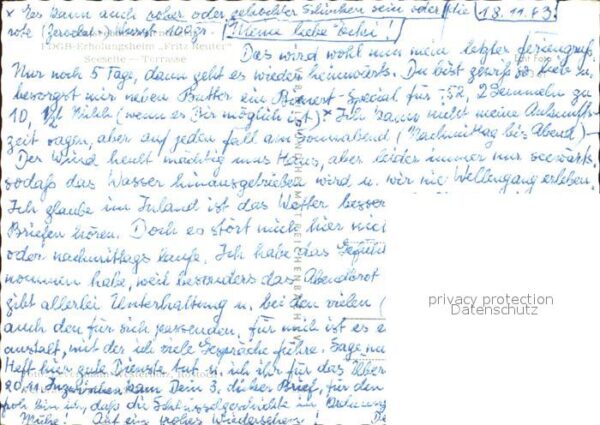 * Es kann auch roher oder gekochter Schinken sein oder die 13.11.63
rote (Zervelat) Wurst 100 gr. Meine liebe
FDGB-Erholungsheim „Fritz Reuter"
Seeseite — Terrasse
Das wird wohl nun mein letzter Feriengruß.
Nur noch 5 Tage, dann geht es wieder heimwärts. Du bist gewiß so lieb u.
besorgst mir neben Butter ein Special für -,52, 2 Semmeln zu
10, Milch (wenn es Dir möglich ist)* Ich kann nicht meine Ankunfts-
zeit sagen, aber auf jeden Fall am Sonnabend (Nachmittag bis Abend)-
Der Wind heult mächtig ums Haus, aber leider immer nur seewärts,
sodaß das Wasser hinausgetrieben wird u. wir nie Wellengang erleben.
Ich glaube im Inland ist das Wetter besser
Briefen hören. Doch es stört mich hier nicht
oder nachmittags laufe. Ich habe das
nommen habe, weil besonders das Abendrot
gibt allerlei Unterhaltung u. bei den vielen (
auch den für sich passenden. Für mich ist es e
anstalt, mit der ich viele Gespräche führe. Sage
Heft hier gute Dienste tut u. ich ihr für das
20.11. Inzwischen kam Dein 3. dicker Brief, für den
froh bin ich, daß die Schlüsselgeschichte in Ordnung
Mühe! Auf ein frohes Wiedersehen!
privacy protection
Datenschutz